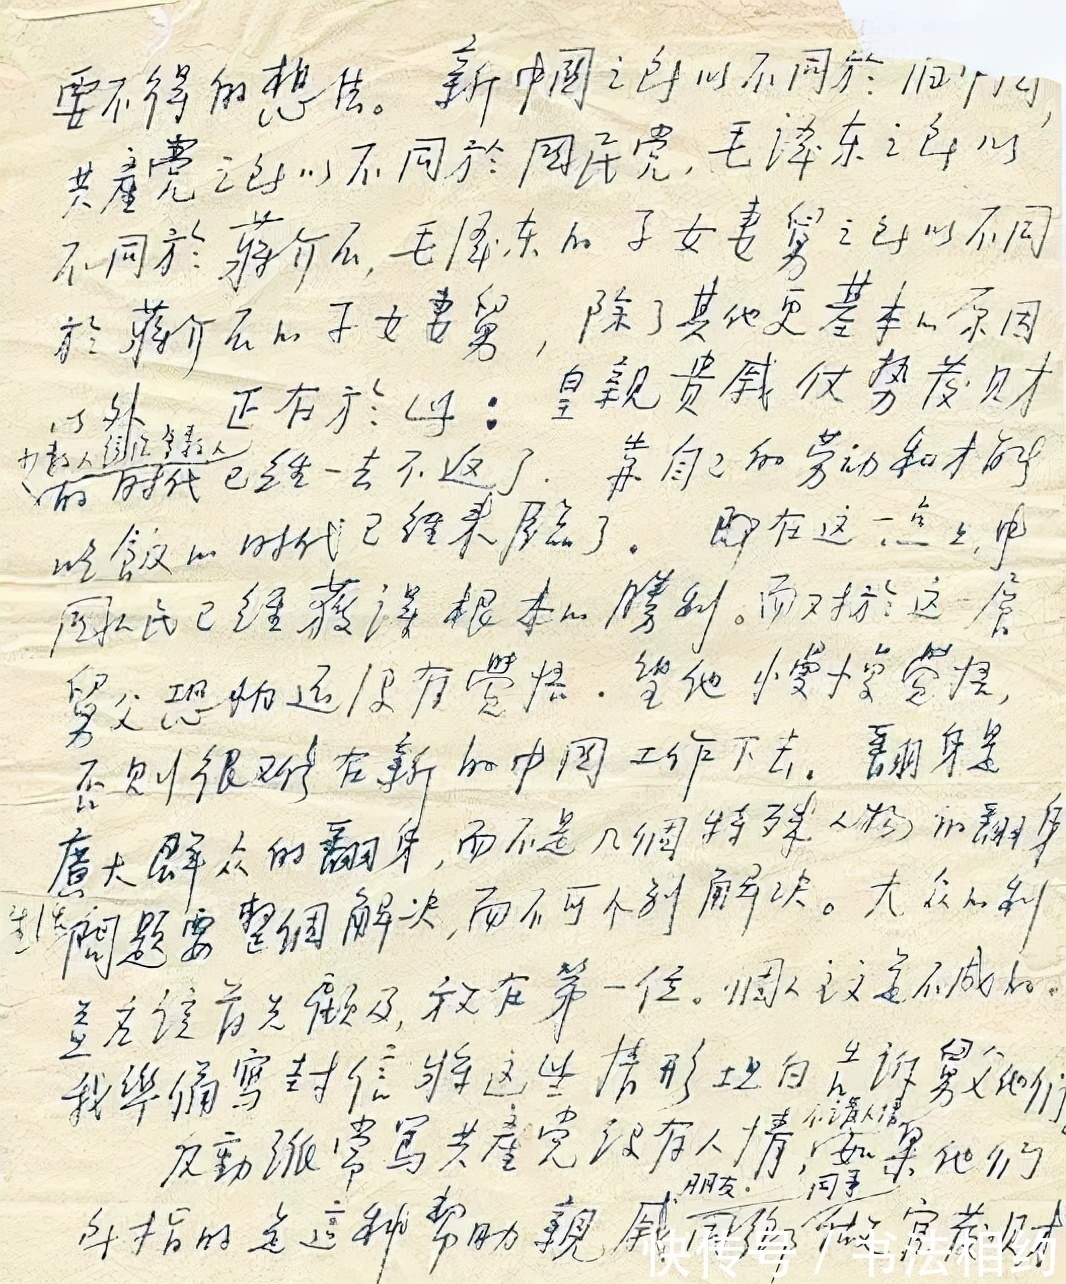 要不得的想法。新中國之所以不同於旧中国，
共產党之所以不同於国民党，毛泽东之所以
不同於蔣介石，毛泽东的子女妻舅之所以不同
於蔣介石的子女妻舅，除了其他更基本的原因
以外，正在於此：皇親貴戚仗势发财
少数人统治多数人
的时代已经一去不返了．靠自己的劳动和才能
吃飯的时代已经来临了。即在这一点上，中
国人民已经獲得根本的勝利。而对於这一層
舅父恐怕还没有覺悟．望他慢慢覺悟，
否则很难在新的中国工作下去。翻身是
廣大群众的翻身，而不是几個特殊人物的翻身
生活問题要整個解决，而不可个别解决。大众的利
益应該首先顧及，放在第一位。個人主义是不成的。
我準備寫封信將这些情形坦白告訴舅父他们。
反動派常罵共產党没有人情，不讲人情，如果他们
所指的是這种帮助親戚朋友同学同事做官发财
快传号 / 书法相约